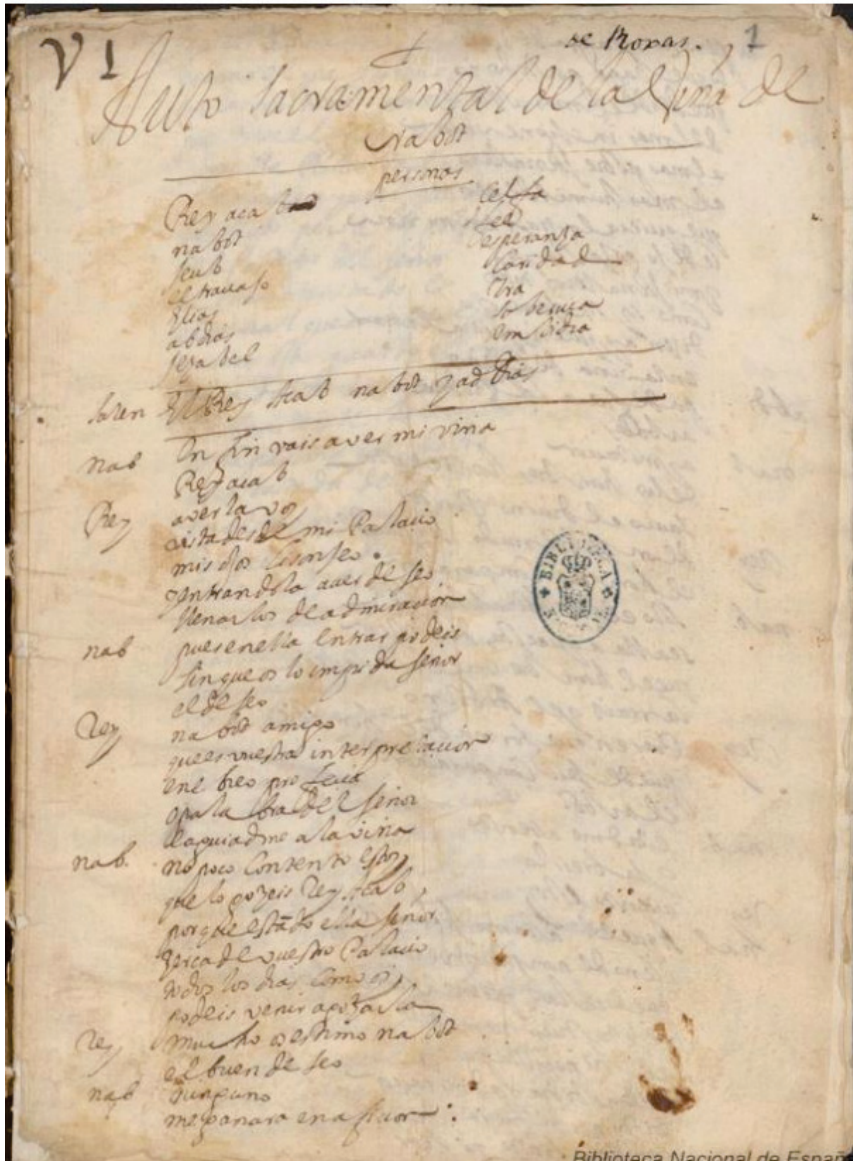 V 1
de Roxas. 1
Auto sacramental de la Viña de
nabot
personas
Rey acab
nabot
Jeub
el travajo
Elias
abdias
Jezabel
la fe
esperanza
Caridad
Ira
soberuia
embidia
salen El Rey Acab nabot y abdias
nab En fin vais a ver mi viña
Rey acab
Rey a verla voy
vista desde mi Palacio
mis ojos
y entrandola a ver deseo
llenarlos de admiracion
nab pues en ella Entrar podeis
sin que os lo impida señor
el deseo
Rey nabot amigo
que es vuestra interpretacion
en ebreo
o palabra del señor
guiadme a la viña
nab. no poco Contento estoy
que lo gozeis Rey Acab
porque estando ella señor
zerca de vuestro Palacio
todos los dias Como oy
podeis venir a gozarla
Rey mucho os estimo nabot
el buen deseo
nab ninguno
me ganara en aficion
BIBLIOTECA
Biblioteca Nacional de España